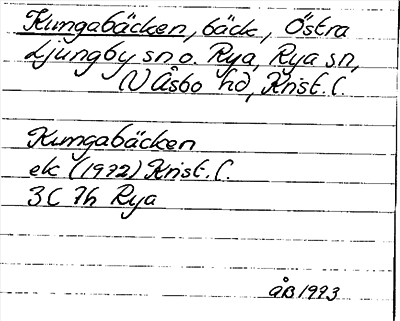 Kungabäcken, bäck, Östra
Ljungby sn o. Rya, Rya sn,
N Åsbo hd, Krist. l.
Kungabäcken
ek (1972) Krist. l.
3C 7h Rya
ÅB 1993